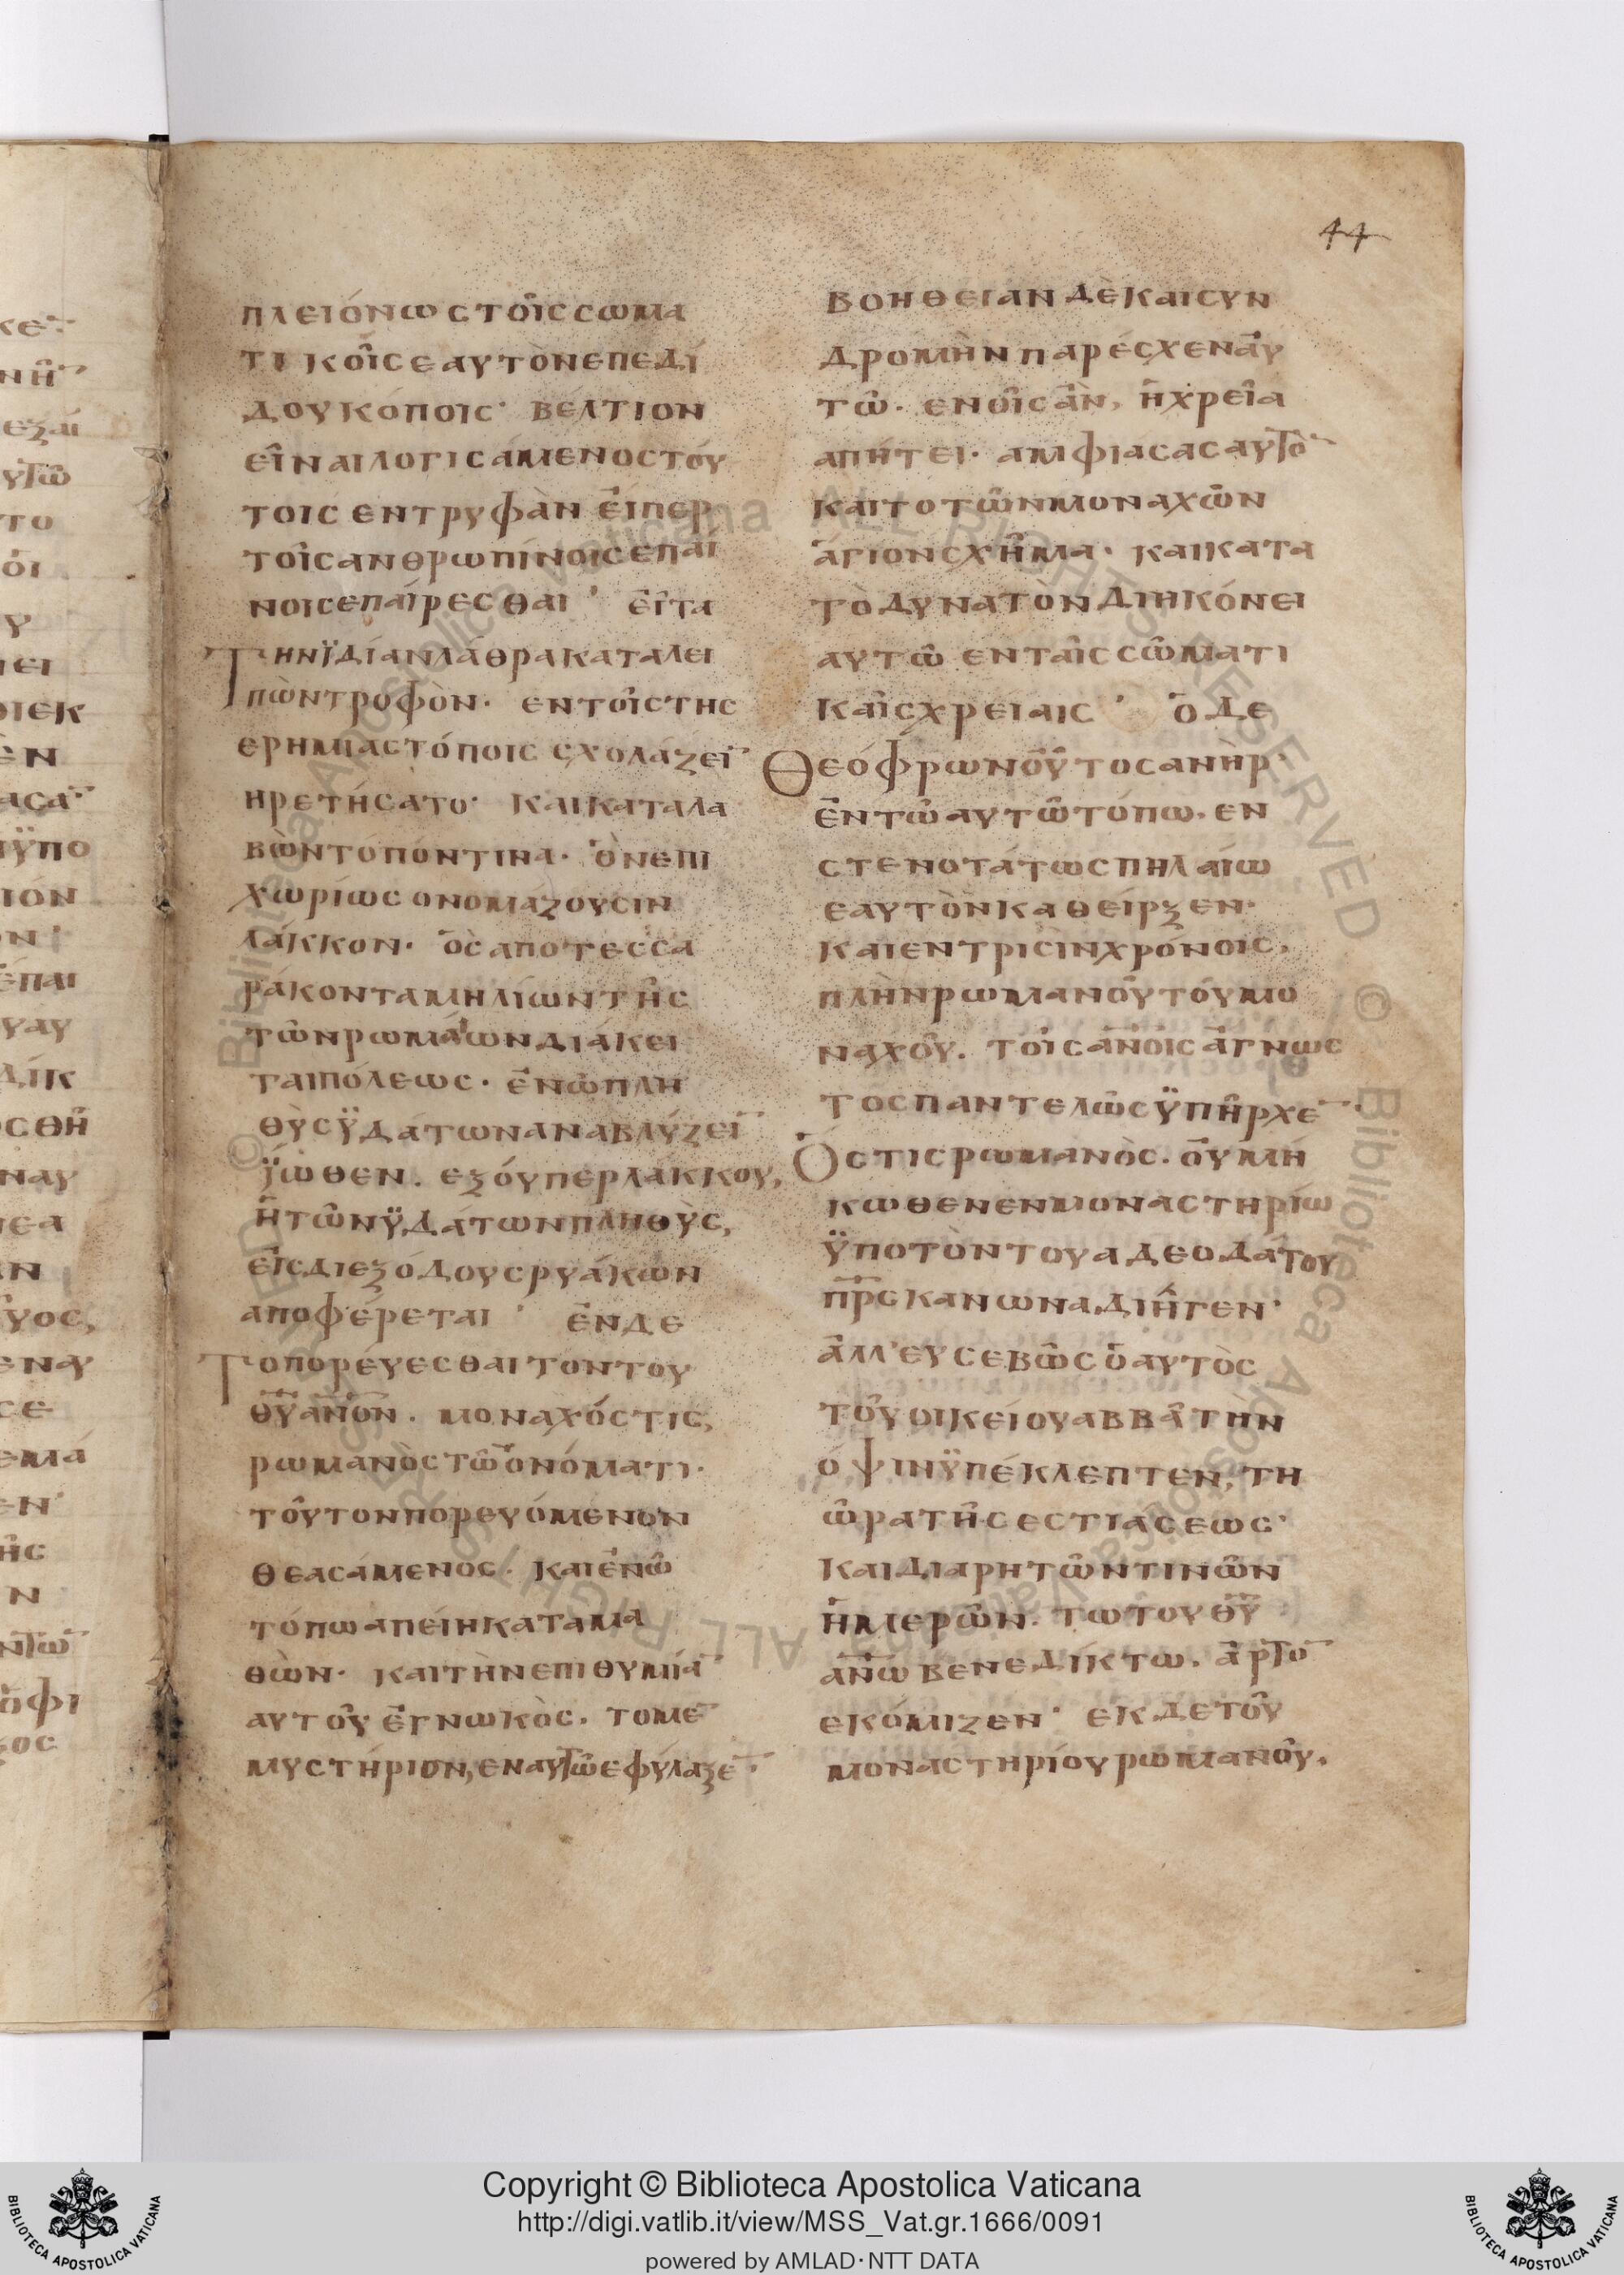 44
πλειόνως τοῖς σωμα
τικοῖς εαυτὸν επεδί
δου κόποις· βέλτιον
εἶναι λογισάμενος τού
τοις εντρυφὰν εἴπερ
τοῖς ανθρωπίνοις επαί
νοις επαίρεσθαι· εἶτα
Τὴν ϊδίαν λάθρα καταλει
πὼν τροφὸν· εν τοῖς της
ερημιας τόποις σχολάζει̅
ηρετήσατο· και καταλα
βὼν τόπον τινα· ὃν επι
χωρίως ονομάζουσιν
λάκκον· ὃς απο τεσσα
ράκοντα μηλίων τῆς
τῶν ρωμαίων διάκει
ται πόλεως· ἐν ὧ πλη
θὺς ϋδάτων αναβλύζει̅
ϋώθεν. εξ ού περ λάκκου,
ἡ τῶν ϋδάτων πληθὺς,
εἰς διεξόδους ρυάκων
αποφέρεται· ἐν δε
Το πορέυεσθαι τον του
θ̅υ̅ α̅ν̅ο̅ν̅. μοναχός τις,
ρωμανὸς τῶ ονόματι·
τοῦτον πορευόμενον
θεασάμενος. και ἐν ὧ
τόπω απείη καταμα
θὼν· και τὴν επιθυμία̅
αυτοῦ ἐγνωκὸς. το με̅
μυστήριον, εν αυτῶ εφύλαξε̅·
βοήθειαν δὲ και συν
δρομὴν παρέσχεν αὐ
τῶ· εν οἷς ὰν, ἡ χρεία
απήτει· αμφιασας αυτὸ̅
και το τῶν μοναχῶν
ἅγιον σχῆμα· και κατα
τὸ δυνατὸν διηκόνει
αυτῶ εν ταῖς σῶματι
καῖς χρείαις· Ὁ δε
Θεόφρων οὗτος ανὴρ·
ἐν τῶ αυτῶ τόπω. εν
στενοτάτω σπηλαίω
εαυτὸν καθείρξεν·
και εν τρισὶν χρόνοις,
πλὴν ρωμανοῦ τού μο
ναχοῦ. τοῖς α̅ν̅οις ἄγνωσ
τος παντελῶς ϋπῆρχε̅·
Ὅστις ρωμανὸς. οὐ μή
κωθεν εν μοναστηρίω
ϋπο τὸν του αδεοδάτου
π̅ρ̅ς κανωνα, διῆγεν·
ἀλλ' ευσεβῶς ὁ αυτὸς
τοῦ οικείου αββᾶ την
όψιν ϋπέκλεπτεν, τη
ὥρα τῆς εστιάσεως·
και δια ρητῶν τινῶν
ἡμερῶν. τω του θ̅υ̅
α̅ν̅ω βενεδίκτω. ἄρτο̅
εκόμιζεν· εκ δε τοῦ
μοναστηρίου ρωμανοῦ,
Copyright © Biblioteca Apostolica Vaticana
http://digi.vatlib.it/view/MSS_Vat.gr.1666/0091
powered by AMLAD·NTT DATA